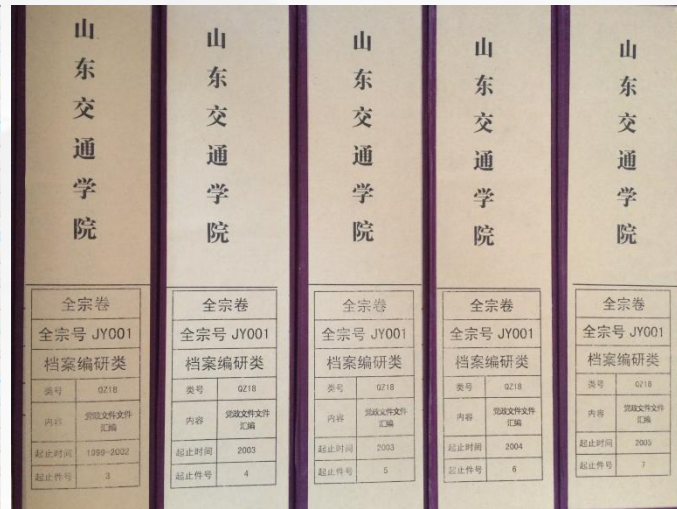 山东交通学院
全宗卷
全宗号 JY001
档案编研类
类号 QZ18
内容 党政文件文件汇编
起止时间 1999-2002
起止件号 3
山东交通学院
全宗卷
全宗号 JY001
档案编研类
类号 QZ18
内容 党政文件文件汇编
起止时间 2003
起止件号 4
山东交通学院
全宗卷
全宗号 JY001
档案编研类
类号 QZ18
内容 党政文件文件汇编
起止时间 2003
起止件号 5
山东交通学院
全宗卷
全宗号 JY001
档案编研类
类号 QZ18
内容 党政文件文件汇编
起止时间 2004
起止件号 6
山东交通学院
全宗卷
全宗号 JY001
档案编研类
类号 QZ18
内容 党政文件文件汇编
起止时间 2005
起止件号 7